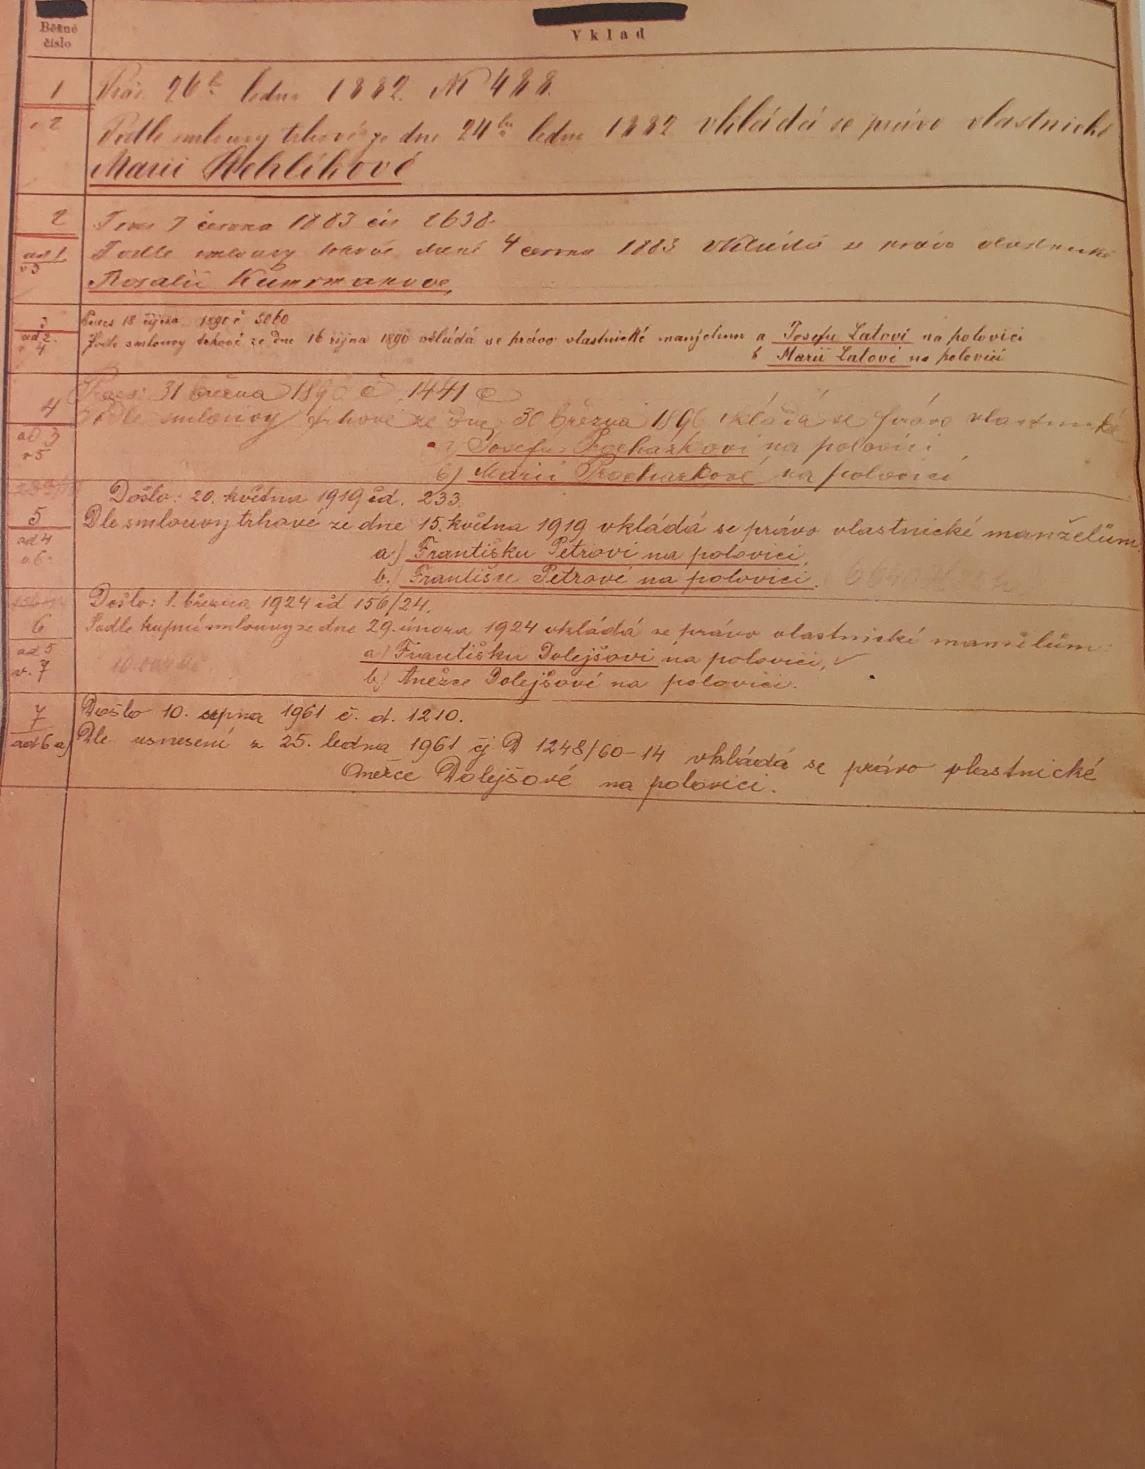 Běžné
číslo
Vklad
1
26 ledna 1882. N 488.
v 2
Podle smlouvy trhové ze dne 24 ledna 1882 vkládá se právo vlastnické
Marii
2
7 června 1883 čís 2638.
ad 1
v 3
Podle smlouvy trhové 4 června 1883 vkládá se právo vlastnické
Rosalii
3
Praes 18 října 1890 č 5060
ad 2.
v 4
Podle smlouvy trhové ze dne 16 října 1890 vkládá se právo vlastnické manželům a Josefu Latovi na polovici
b Marii Latové na polovici
4
Praes: 31 března 1896 č 1441
Podle smlouvy trhové ze dne 30 března 1896 vkládá se právo vlastnické
ad 3
v 5
a) Josefu Procházkovi na polovici
b) Marii Procházkové na polovici
Došlo: 20. května 1919 čd. 233
5
Dle smlouvy trhové ze dne 15. května 1919 vkládá se právo vlastnické manželům
ad 4
v 6
a) Františku Petrovi na polovici,
b.) Františce Petrové na polovici.
Došlo: 1. března 1924 čd 156/24.
6
Podle kupní smlouvy ze dne 29. února 1924 vkládá se právo vlastnické manželům:
ad 5
v. 7
a) Františku Dolejšovi na polovici,
b) Anežce Dolejšové na polovici.
7
Došlo 10. srpna 1961 č. d. 1210.
ad 6 a)
Dle usnesení z 25. ledna 1961 čj D 1248/60-14 vkládá se právo vlastnické
Anežce Dolejšové na polovici.